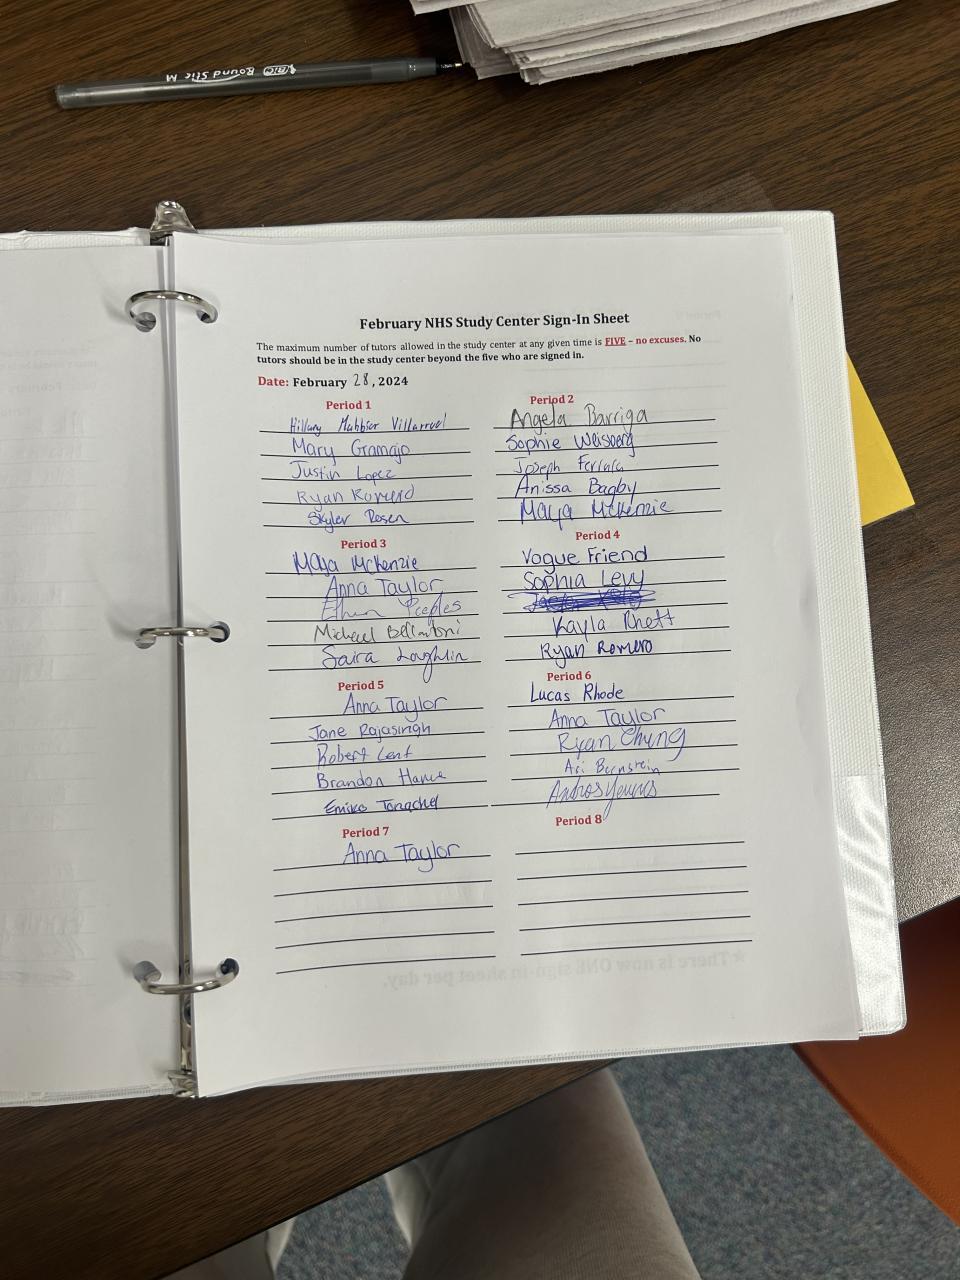 BIC Round Stic M
February NHS Study Center Sign-In Sheet
The maximum number of tutors allowed in the study center at any given time is FIVE – no excuses. No
tutors should be in the study center beyond the five who are signed in.
Date: February 28, 2024
Period 1
Hillary Villarruel
Mary Gramajo
Justin Lopez
Ryan Romero
Skyler Rosen
Period 2
Angela Barriga
Sophie Weisberg
Joseph
Anissa Bagby
Maya McKenzie
Period 3
Maya McKenzie
Anna Taylor
Ethan Peeples
Michael Bellantoni
Saira Loughlin
Period 4
Vogue Friend
Sophia Levy
Kayla Rhett
Ryan Romero
Period 5
Anna Taylor
Jane Rajasingh
Robert Lent
Brandon
Emiko
Period 6
Lucas Rhode
Anna Taylor
Ryan Chung
Ari Bernstein
Andros Youns
Period 7
Anna Taylor
Period 8
★There is now ONE sign-in sheet per day.